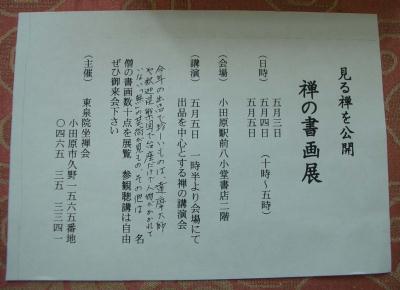 見る禅を公開
禅の書画展
(日時) 五月三日
五月四日 (十時~五時)
五月五日
(会場) 小田原駅前八小堂書店二階
(講演) 五月五日 一時半より会場にて
出品を中心とする禅の講演会
今年の出品で珍しいものは、達摩大師
や釈迦
台座だけで人物がかかれて
ない 無の芸術 その他は 名
僧の書画数十点を展覧 参観聴講は自由
ぜひ御来会下さい
(主催) 東泉院坐禅会
小田原市久野一五六五番地
〇四六五 三五 三三四一